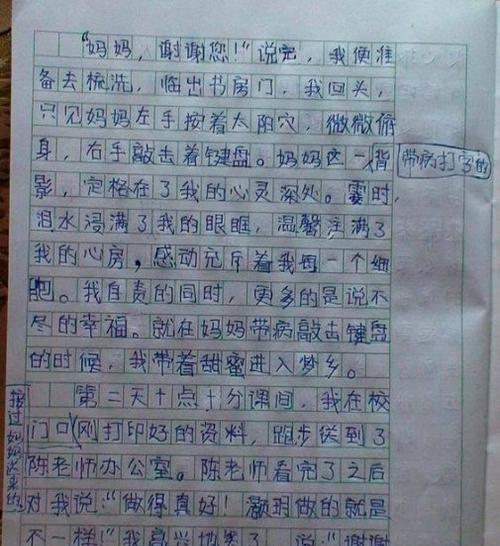 “妈妈，谢谢您！”说完，我便准
备去梳洗，临出书房门，我回头，
只见妈妈左手按着太阳穴，微微俯
身，右手敲击着键盘。妈妈这一背
带病打字的
影，定格在了我的心灵深处。霎时，
泪水浸满了我的眼眶，温馨注满了
我的心房，感动充斥着我每一个细
胞。我自责的同时，更多的是说不
尽的幸福。就在妈妈带病敲击键盘
的时候，我带着甜蜜进入梦乡。
第二天十点十分课间，我在校
接过妈妈送来的
门口刚打印好的资料，跑步送到了
陈老师办公室。陈老师看完了之后
对我说：“做得真好！灏玥做的就是
不一样！”我高兴地笑了，说：“谢谢